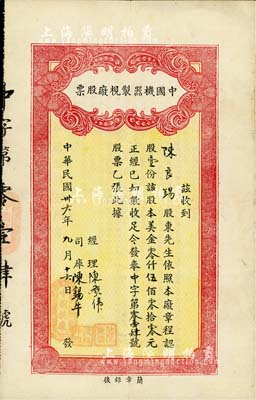 中國機器製梘廠股票
茲收到
陳良瑒股東先生依照本廠章程認
股壹份該股本美金零仟伍佰零拾零元
正經已如數收足合發奉中字第零壹肆號
股票乙張此據
經理陳
司庫陳錫年
中華民國卅六年九月十六日發
簡章錄後
中字第零壹肆號